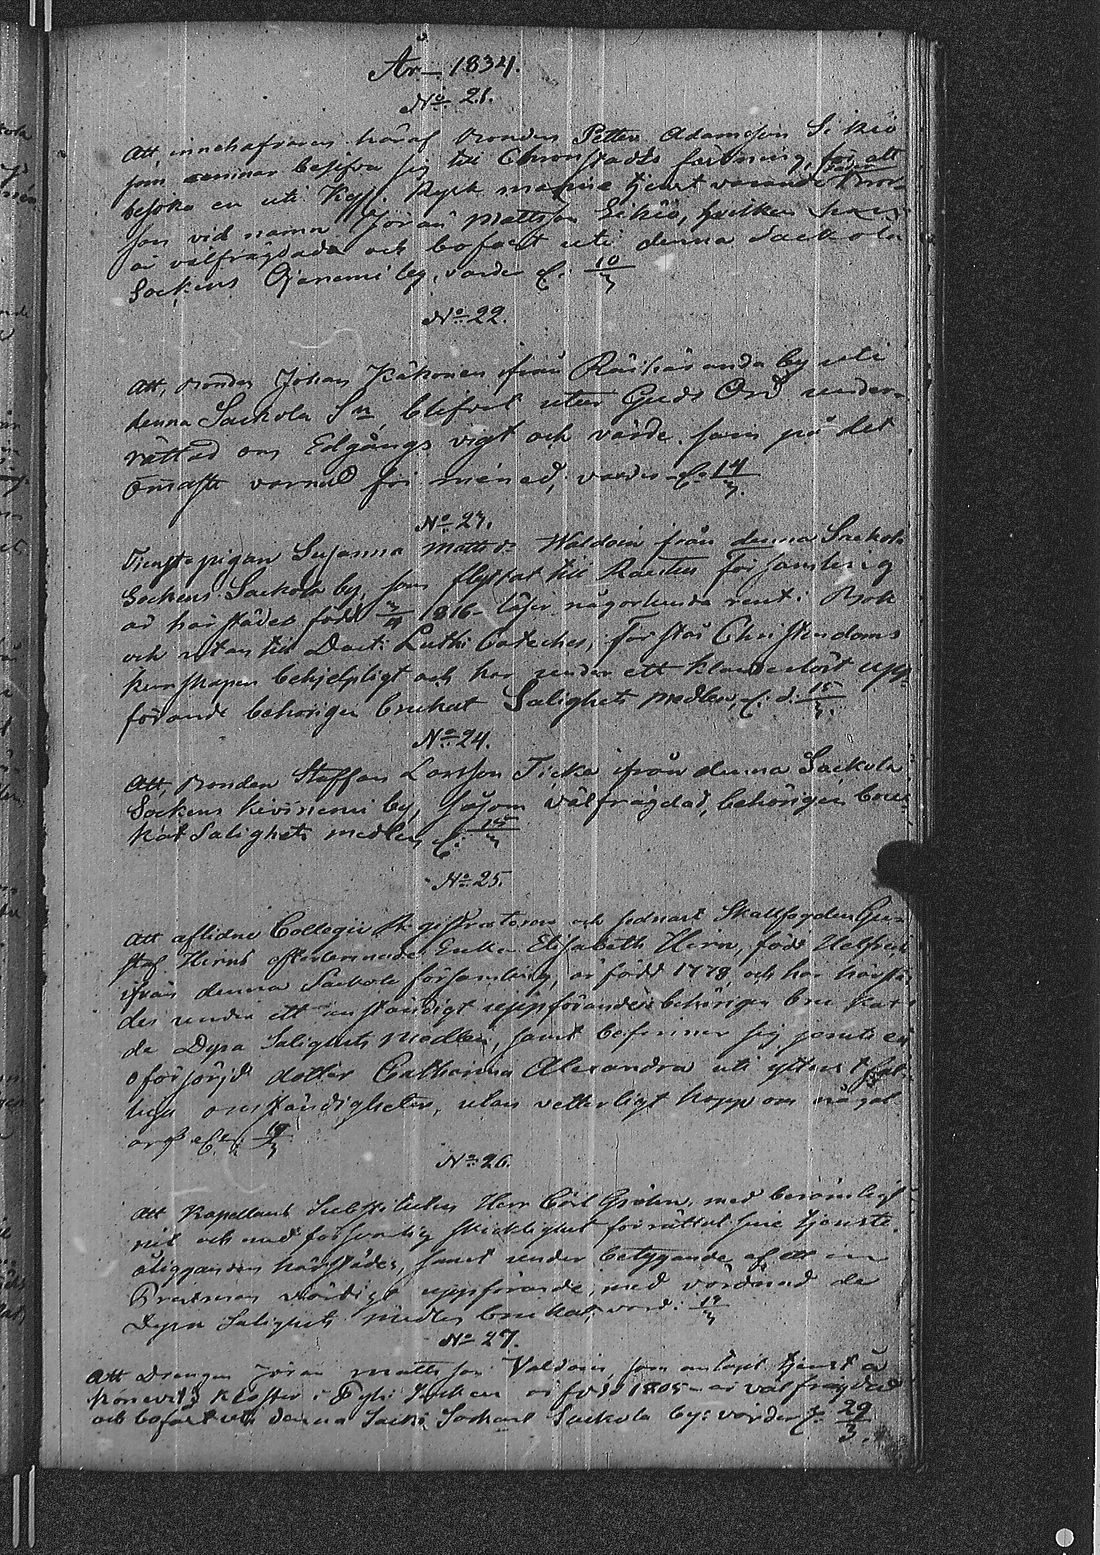 År 1834.
No. 21.
Att innehafvaren häraf Bonden Petter Adamsson Sikiö
som ämnar begifva sig till Cronstadts församling, för att
besöka en uti Kejs. Rysk marine tjenst varande Broder
son vid namn Jöran Mattsson Sikiö, hvilken
är välfrägdade och bofast uti denna Sackola
Sockens by, varder C: 10/3
No. 22.
Att, Bonden Johan Käkönen ifrån Räisäranda by uti
denna Sackola Sn, blifvit utur Guds Ord under-
rättad om Edgångs vigt och värde, samt på det
ömaste varnad för mened, varder C: 14/3.
No. 23.
Tienstepigan Susanna Mattsdr Waldoin från denna Sackola
Sockens Sackola by, som flyttat till Rautus församling
är härstädes född 3/4 1816 läser någorlunda rent i Bok
och utan till Doct: Luthi Cateches, förstår Christendoms
kunskapen behjelpligt och har under ett klanderlöst upp-
förande behörigen brukat Salighets medlen, C. d. 15/3.
No. 24.
Att, Bonden Staffan Larsson Ticka ifrån denna Sackola
Sockens Kiviniemi by, såsom välfrägdad, behörigen bru-
kat Salighets medlen C: 15/3
No. 25.
Att aflidne Collegii Registratoren och fednart Skallfogden Gus-
taf Hirns efterlemnade Enka Elisabeth Hirn, född
ifrån denna Sackola församling, är född 1778 och har härstä-
des under ett anständigt uppförande behörigen brukat
de Dyra Salighets Medlen, samt befinner sig jemte en
oförsörjd dotter Catharina Alexandra uti yttert fat-
tiga omständigheter, utan vetterligt hopp om något
arf C. 19/3
No. 26.
Att Kapellans Substituten Herr Carl med berömligt
nit och med försvarlig skicklighet förrättat sine tjenste-
åligganden härstädes, samt under betygande af ett en
Prestman värdigt uppförande, med vördnad de
Dyra Salighets medlen brukat, vard. 19/3
No. 27.
Att Drengen Jöran Mattsson Valdoin, som antagit tjenst å
Konevits Kloster i Socken är född 1805 är välfrägdad
och bofast uti denna Sackola Sockens Sackola by: varder C: 29/3.